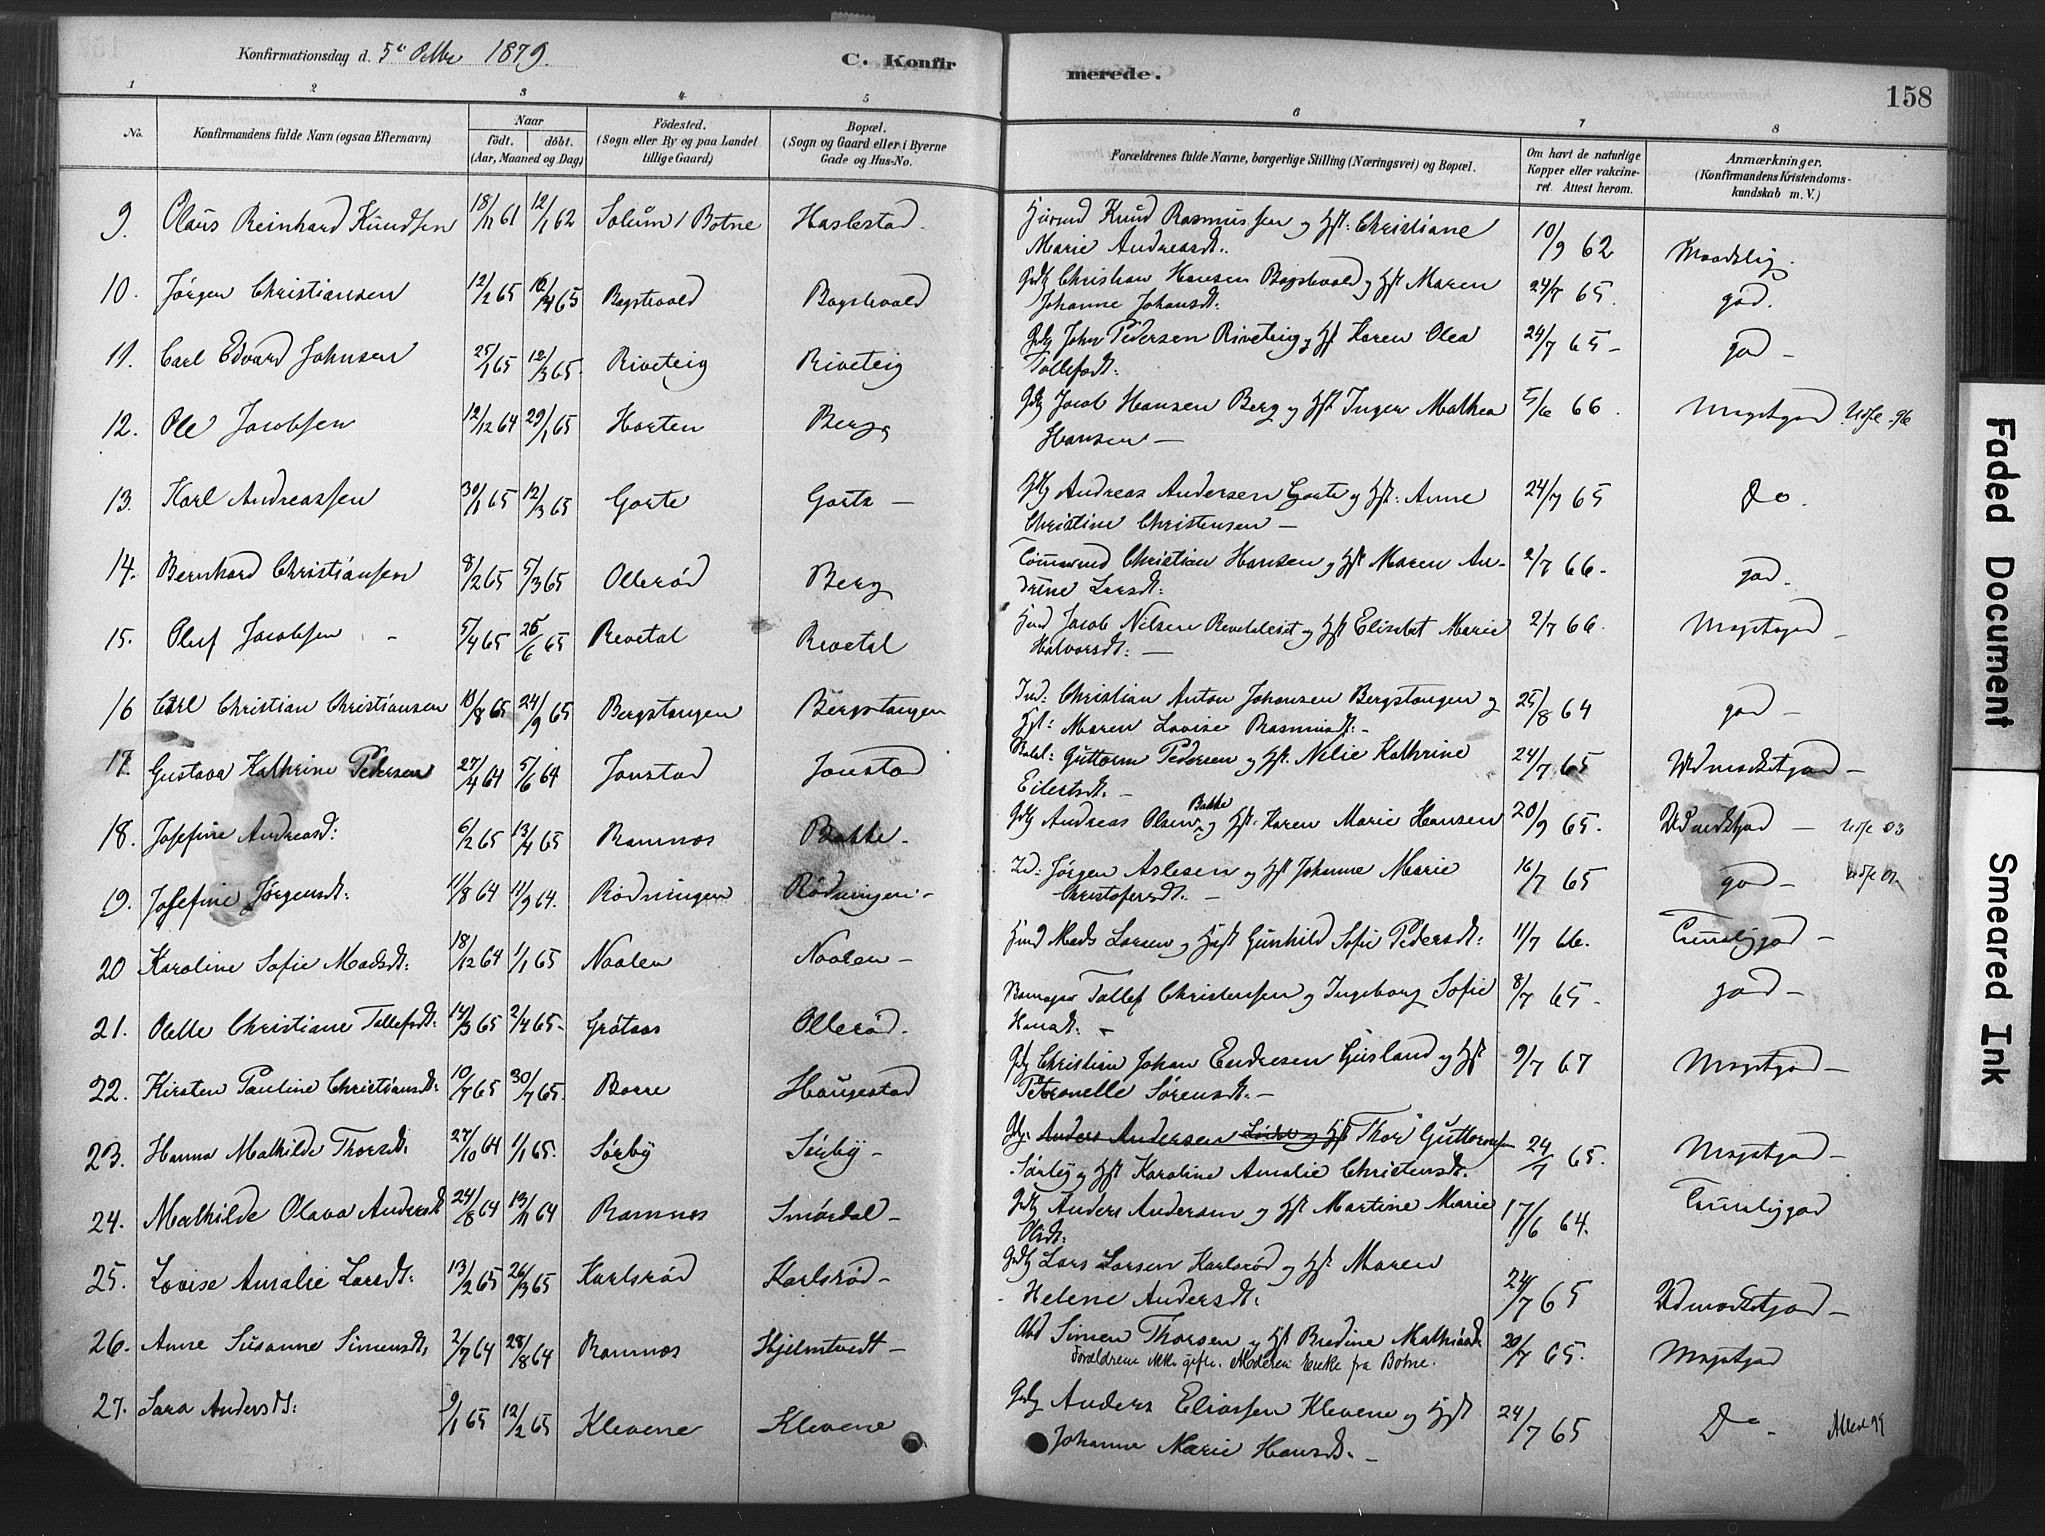 Konfirmationsdag d. 5te Oktbr 1879.
C. Konfirmerede.
158
1 2 3 4 5 6 7 8
No.
Konfirmandens fulde Navn (ogsaa Efternavn)
Naar
født. døbt.
(Aar, Maaned og Dag)
Fødested.
(Sogn eller By og paa Landet
tillige Gaard)
Bopæl.
(Sogn og Gaard eller i Byerne
Gade og Hus-No.
Forældrenes fulde Navne, borgerlige Stilling (Næringsvei) og Bopæl.
Om havt de naturlige
Kopper eller vakcine-
ret. Attest herom.
Anmærkninger.
(Konfirmandens Kristendoms-
kundskab m. V.)
9. Olaus Reinhard Knudsen 18/11 61 12/1 62 Solum / Botne Haslestad Knud Rasmussen og Hst: Christiane
Marie Andreasdt: 10/9 62 Maadelig.
10. Jørgen Christiansen 12/2 65 65 Bagstvold Bagstvold Gdbr Christian Hansen Bagstvold og Hst Maren
Johanne Johansdt: 24/7 65. god.
11. Carl Edvard Johnsen 25/1 65 12/3 65. Riveteig Riveteig Gdbr John Pedersen Riveteig og Hst Karen Olea
Tollefsdt: 24/7 65 – god –
12. Ole Jacobsen 12/12 64 29/1 65 Horten Berg Gdbr Jacob Hansen Berg og Hst Inger Mathea
Hansen – 5/6 66. Megetgod
13. Karl Andreassen 30/1 65 12/3 65 Gorte Gorte – Gdbr Andreas Andersen Gorte og Hst: Anne
Christine Christensen – 24/7 65 Do.
14. Bernhard Christiansen 8/2 65 5/3 65 Ollerød Berg Christian Hansen og Hst Maren An-
drine Larsdt: 2/7 66. god.
15. Oluf Jacobsen – 5/4 65 25/6 65 Revetal Revetal Jacob Nilsen og Hst Elisabet Marie
Halvorsdt: – 2/7 66. Megetgod –
16 Carl Christian Christiansen 10/8 65 24/9 65 Bergstangen Bergstangen Ind: Christian Anton Johansen Bergstangen og
Hst: Maren Lovise Rasmusdt: – 25/8 64 god –
17. Gustava Kathrine Pedersen 27/4 64 5/6 64 Jonstad Jonstad Guttorm Pedersen og Hst. Nilie Kathrine
Eilertsdt. – 24/7 65 Udmerketgod –
18. Josefine Andreasdt: 6/2 65 13/4 65 Ramnes Bakke. Gdbr Andreas Olsen Bakke og Hst. Karen Marie Hansen 20/9 65. Udmerketgod – 03
19. Josefine Jørgensdt: 11/8 64 11/9 64. Rødningen Rødningen – Ind: Jørgen Aslesen og Hst Johanne Marie
Christofersdt. – 16/7 65 god –
20 Karoline Sofie Madsdt: 18/12 64 1/1 65 Naalen Naalen – Mads Larsen og Hst Gunhild Sofie Pedersdt: 11/7 66. Temeliggod –
21. Oelle Christiane Tollefsdt: 14/3 65 2/4 65 – Grøtaas Ollerød. Tollef Christensen og Ingeborg Sofie
Hansdt: – 8/7 65 – god –
22. Kirsten Pauline Christiansdt: 10/7 65 30/7 65. Borre Haugestad Gdbr Christian Johan Endresen Gusland og Hst
Petronelle Sørensdt. – 9/7 67 Megetgod –
23. Hanna Mathilde Thorsdt. 27/10 64 1/1 65. Sørby Sørby – Gbr. Anders Andersen og Hst Thor Guttormsen
Sørby og Hst Karoline Amalie Christensdt. 24/7 65. Megetgod –
24. Mathilde Olava Andersdt 24/8 64 13/11 64 Ramnes Smørdal – Gdbr Anders Andersen og Hst Martine Marie
Olsdt: 17/6 64. Temeliggod
25. Lovise Amalie Larsdt: 13/2 65 26/3 65 Karlsrød Karlsrød – Gdbr Lars Larsen Karlsrød og Hst Maren
Helene Andersdt: 24/7 65 Udmerketgod –
26. Anne Susanne Simensdt. 2/7 64 28/8 64 Ramnes Hjelmtvedt – Simen Thorsen og Hst Bredine Mathiasdt. 20/7 65. Megetgod
Forældrene ikke gifte. Moderen Enke fra Botne.
27. Sara Andersdt: 9/1 65 12/2 65 Klevene Klevene Gdbr Anders Eliassen Klevene og Hst
Johanne Marie Hansdt. – 24/7 65 Do –
Faded Document
Smeared Ink